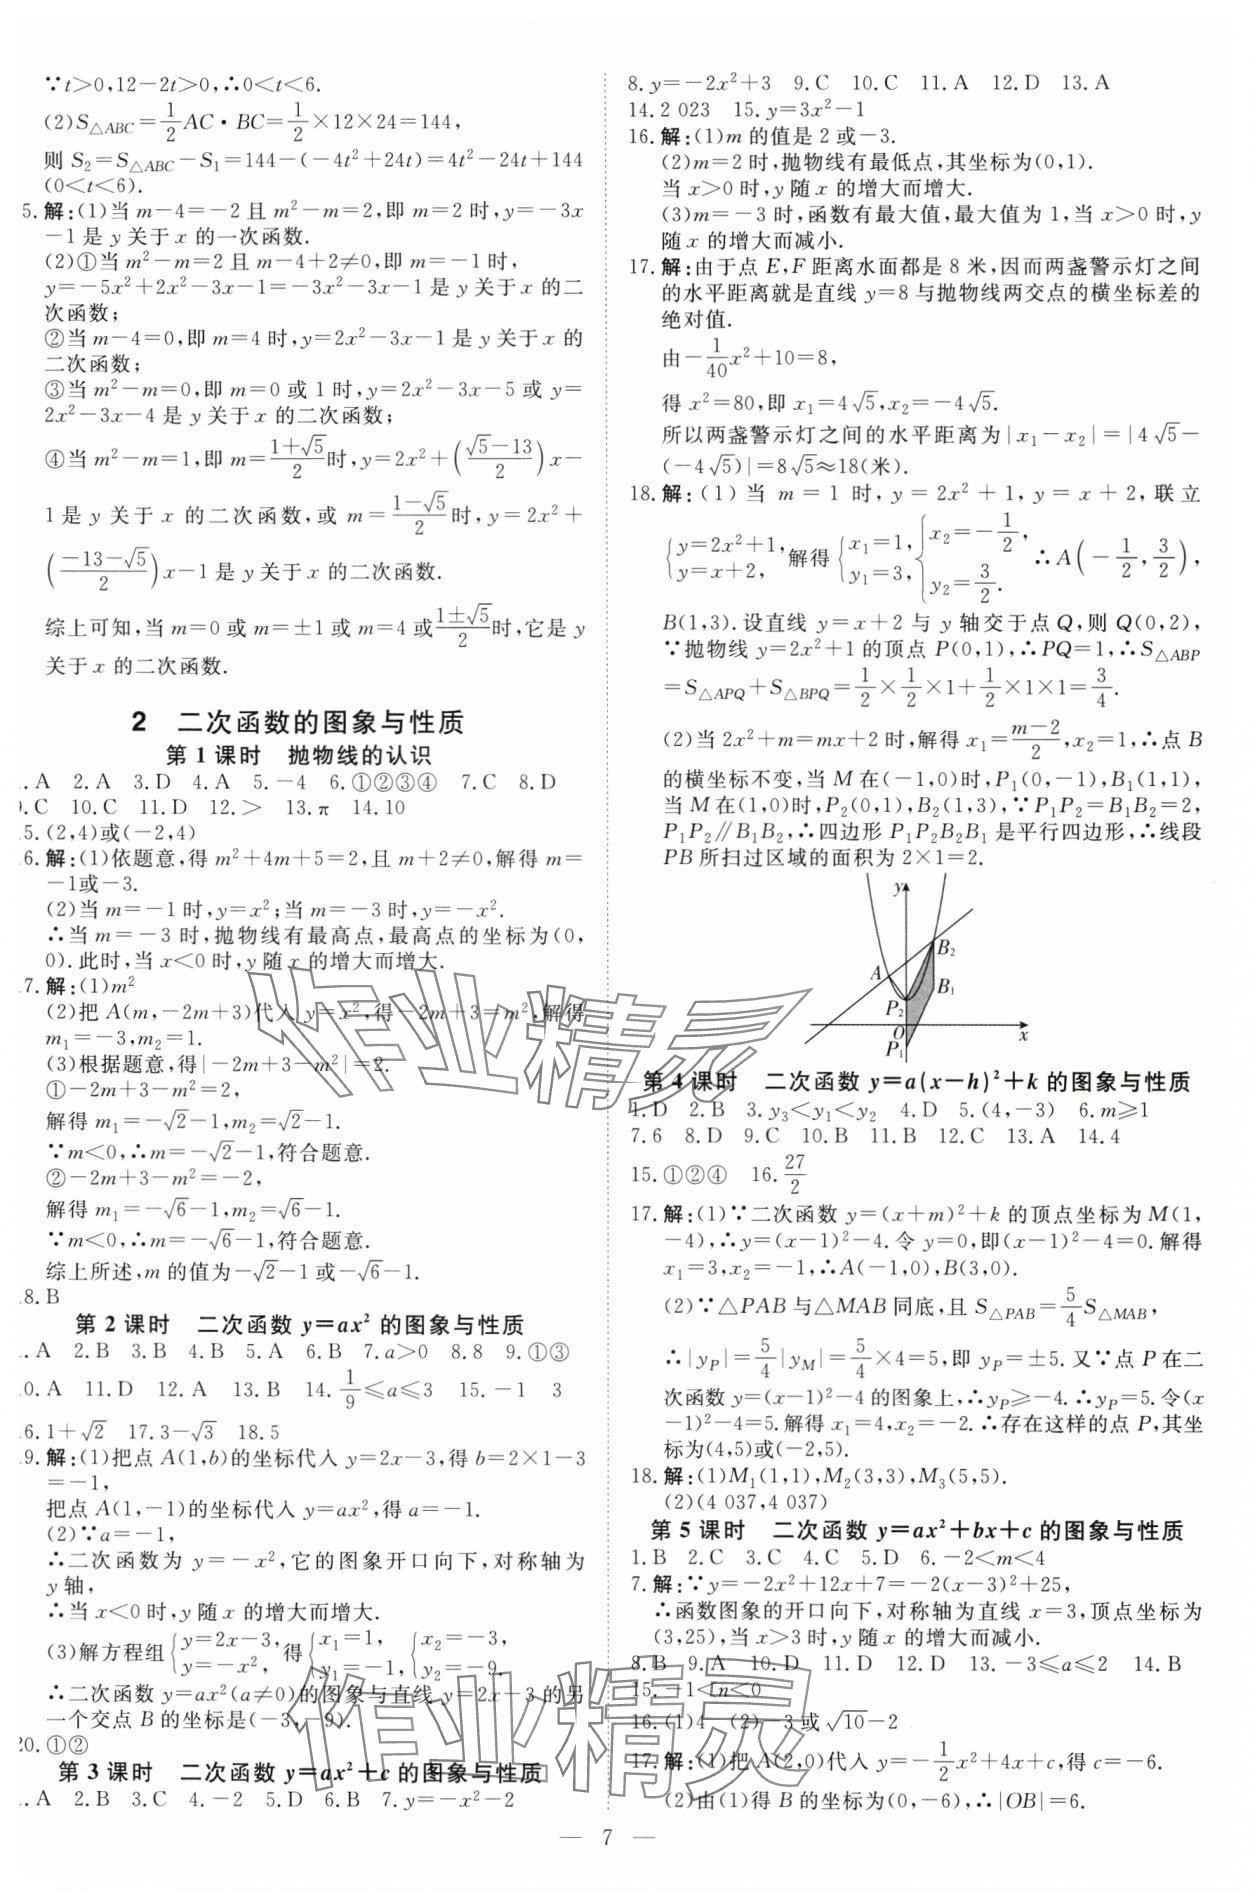 ∵t>0,12-2t>0,∴0<t<6.
(2)S△ABC=1/2 AC·BC=1/2×12×24=144,
则 S₂=S△ABC-S₁=144-(-4t²+24t)=4t²-24t+144
(0<t<6).
5.解:(1)当 m-4=-2 且 m²-m=2,即 m=2 时,y=-3x
-1 是 y 关于 x 的一次函数.
(2)①当 m²-m=2 且 m-4+2≠0,即 m=-1 时,
y=-5x²+2x²-3x-1=-3x²-3x-1 是 y 关于 x 的二
次函数;
②当 m-4=0,即 m=4 时,y=2x²-3x-1 是 y 关于 x 的
二次函数;
③当 m²-m=0,即 m=0 或 1 时,y=2x²-3x-5 或 y=
2x²-3x-4 是 y 关于 x 的二次函数;
④当 m²-m=1,即 m=(1+√5)/2 时,y=2x²+((√5-13)/2)x-
1 是 y 关于 x 的二次函数,或 m=(1-√5)/2 时,y=2x²+
((-13-√5)/2)x-1 是 y 关于 x 的二次函数.
综上可知,当 m=0 或 m=±1 或 m=4 或 (1±√5)/2 时,它是 y
关于 x 的二次函数.
2 二次函数的图象与性质
第 1 课时 抛物线的认识
.A 2.A 3.D 4.A 5.-4 6.①②③④ 7.C 8.D
.C 10.C 11.D 12.> 13.π 14.10
.5.(2,4)或(-2,4)
.6.解:(1)依题意,得 m²+4m+5=2,且 m+2≠0,解得 m=
-1 或-3.
(2)当 m=-1 时,y=x²;当 m=-3 时,y=-x².
∴当 m=-3 时,抛物线有最高点,最高点的坐标为(0,
0).此时,当 x<0 时,y 随 x 的增大而增大.
.7.解:(1)m²
(2)把 A(m,-2m+3)代入 y=x²,得-2m+3=m².解得
m₁=-3,m₂=1.
(3)根据题意,得|-2m+3-m²|=2.
①-2m+3-m²=2,
解得 m₁=-√2-1,m₂=√2-1.
∵m<0,∴m=-√2-1,符合题意.
②-2m+3-m²=-2,
解得 m₁=-√6-1,m₂=√6-1.
∵m<0,∴m=-√6-1,符合题意.
综上所述,m 的值为-√2-1 或-√6-1.
.8.B
第 2 课时 二次函数 y=ax² 的图象与性质
.A 2.B 3.B 4.B 5.A 6.B 7.a>0 8.8 9.①③
.0.A 11.D 12.A 13.B 14.1/9≤a≤3 15.-1 3
.6.1+√2 17.3-√3 18.5
.9.解:(1)把点 A(1,b)的坐标代入 y=2x-3,得 b=2×1-3
=-1,
把点 A(1,-1)的坐标代入 y=ax²,得 a=-1.
(2)∵a=-1,
∴二次函数为 y=-x²,它的图象开口向下,对称轴为
y 轴,
∴当 x<0 时,y 随 x 的增大而增大.
(3)解方程组{y=2x-3, y=-x², 得{x₁=1, y₁=-1, {x₂=-3, y₂=-9.
∴二次函数 y=ax²(a≠0)的图象与直线 y=2x-3 的另
一个交点 B 的坐标是(-3,-9).
20.①②
第 3 课时 二次函数 y=ax²+c 的图象与性质
.A 2.B 3.C 4.-2 5.D 6.B 7.y=-x²-2
8.y=-2x²+3 9.C 10.C 11.A 12.D 13.A
14.2 023 15.y=3x²-1
16.解:(1)m 的值是 2 或-3.
(2)m=2 时,抛物线有最低点,其坐标为(0,1).
当 x>0 时,y 随 x 的增大而增大.
(3)m=-3 时,函数有最大值,最大值为 1,当 x>0 时,y
随 x 的增大而减小.
17.解:由于点 E,F 距离水面都是 8 米,因而两盏警示灯之间
的水平距离就是直线 y=8 与抛物线两交点的横坐标差的
绝对值.
由-1/40 x²+10=8,
得 x²=80,即 x₁=4√5,x₂=-4√5.
所以两盏警示灯之间的水平距离为|x₁-x₂|=|4√5-
(-4√5)|=8√5≈18(米).
18.解:(1)当 m=1 时,y=2x²+1,y=x+2,联立
{y=2x²+1, y=x+2, 解得{x₁=1, y₁=3, {x₂=-1/2, y₂=3/2. ∴A(-1/2,3/2),
B(1,3).设直线 y=x+2 与 y 轴交于点 Q,则 Q(0,2),
∵抛物线 y=2x²+1 的顶点 P(0,1),∴PQ=1,∴S△ABP
=S△APQ+S△BPQ=1/2×1/2×1+1/2×1×1=3/4.
(2)当 2x²+m=mx+2 时,解得 x₁=(m-2)/2,x₂=1,∴点 B
的横坐标不变,当 M 在(-1,0)时,P₁(0,-1),B₁(1,1),
当 M 在(1,0)时,P₂(0,1),B₂(1,3),∵P₁P₂=B₁B₂=2,
P₁P₂∥B₁B₂,∴四边形 P₁P₂B₂B₁ 是平行四边形,∴线段
PB 所扫过区域的面积为 2×1=2.
y
B₂
A
B₁
P₂
O
x
P₁
第 4 课时 二次函数 y=a(x-h)²+k 的图象与性质
1.D 2.B 3.y₃<y₁<y₂ 4.D 5.(4,-3) 6.m≥1
7.6 8.D 9.C 10.B 11.B 12.C 13.A 14.4
15.①②④ 16.27/2
17.解:(1)∵二次函数 y=(x+m)²+k 的顶点坐标为 M(1,
-4),∴y=(x-1)²-4.令 y=0,即(x-1)²-4=0.解得
x₁=3,x₂=-1,∴A(-1,0),B(3,0).
(2)∵△PAB 与△MAB 同底,且 S△PAB=5/4 S△MAB,
∴|yP|=5/4|yM|=5/4×4=5,即 yP=±5.又∵点 P 在二
次函数 y=(x-1)²-4 的图象上,∴yP≥-4.∴yP=5.令(x
-1)²-4=5.解得 x₁=4,x₂=-2.∴存在这样的点 P,其坐
标为(4,5)或(-2,5).
18.解:(1)M₁(1,1),M₂(3,3),M₃(5,5).
(2)(4 037,4 037)
第 5 课时 二次函数 y=ax²+bx+c 的图象与性质
1.B 2.C 3.C 4.C 5.D 6.-2<m<4
7.解:∵y=-2x²+12x+7=-2(x-3)²+25,
∴函数图象的开口向下,对称轴为直线 x=3,顶点坐标为
(3,25),当 x>3 时,y 随 x 的增大而减小.
8.B 9.A 10.D 11.D 12.D 13.-3≤a≤2 14.B
15.-1<n<0
16.(1)4 (2)-3 或√10-2
17.解:(1)把 A(2,0)代入 y=-1/2 x²+4x+c,得 c=-6.
(2)由(1)得 B 的坐标为(0,-6),∴|OB|=6.
— 7 —
作业精灵
作业精灵